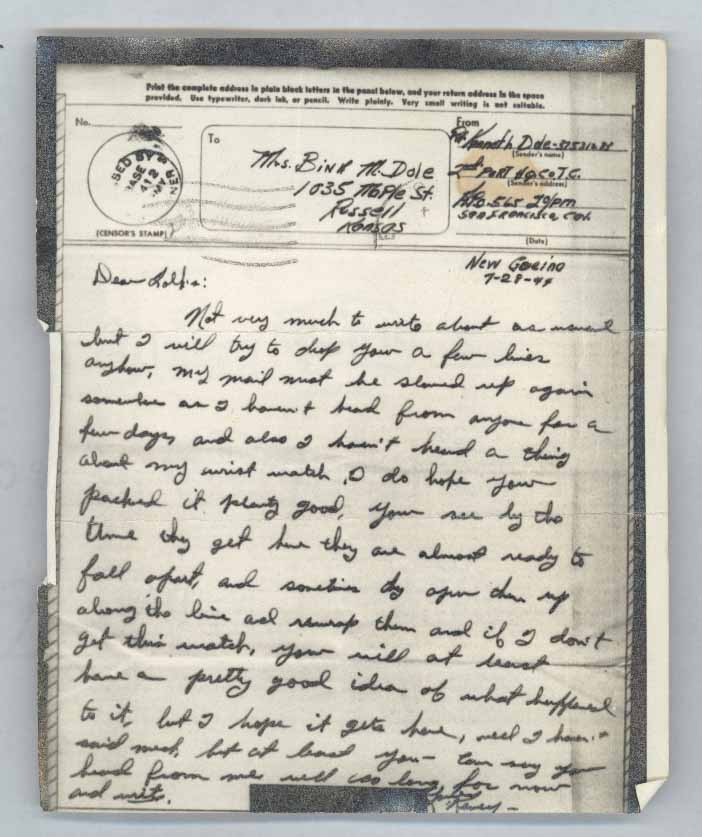 Print the complete address in plain block letters in the panel below, and your return address in the space
provided. Use typewriter, dark ink, or pencil. Write plainly. Very small writing is not suitable.
No.
To
From
Mrs. Bina M. Dole
1035 Maple St.
Russell
Kansas
Kenneth Dole-
(Sender's name)
2nd Port Hq. Co. T.C.
(Sender's address)
APO-565 % PM
San Francisco Cal.
(Date)
SED BY
BASE
412
ARMY
(CENSOR'S STAMP)
New Guinea
7-28-44
Dear Folks:
Not very much to write about as usual
but I will try to drop you a few lines
anyhow, my mail must be slowed up again
somewhere as I haven't heard from anyone for a
few days, and also I haven't heard a thing
about my wrist watch, I do hope you
packed it plenty good, you see by the
time they get here they are almost ready to
fall apart, and sometimes they open them up
along the line and rewrap them and if I don't
get this watch, you will at least
have a pretty good idea of what happened
to it, but I hope it gets here, well I haven't
said much, but at least you can say you
heard from me well so long for now
and write.
Kenny-